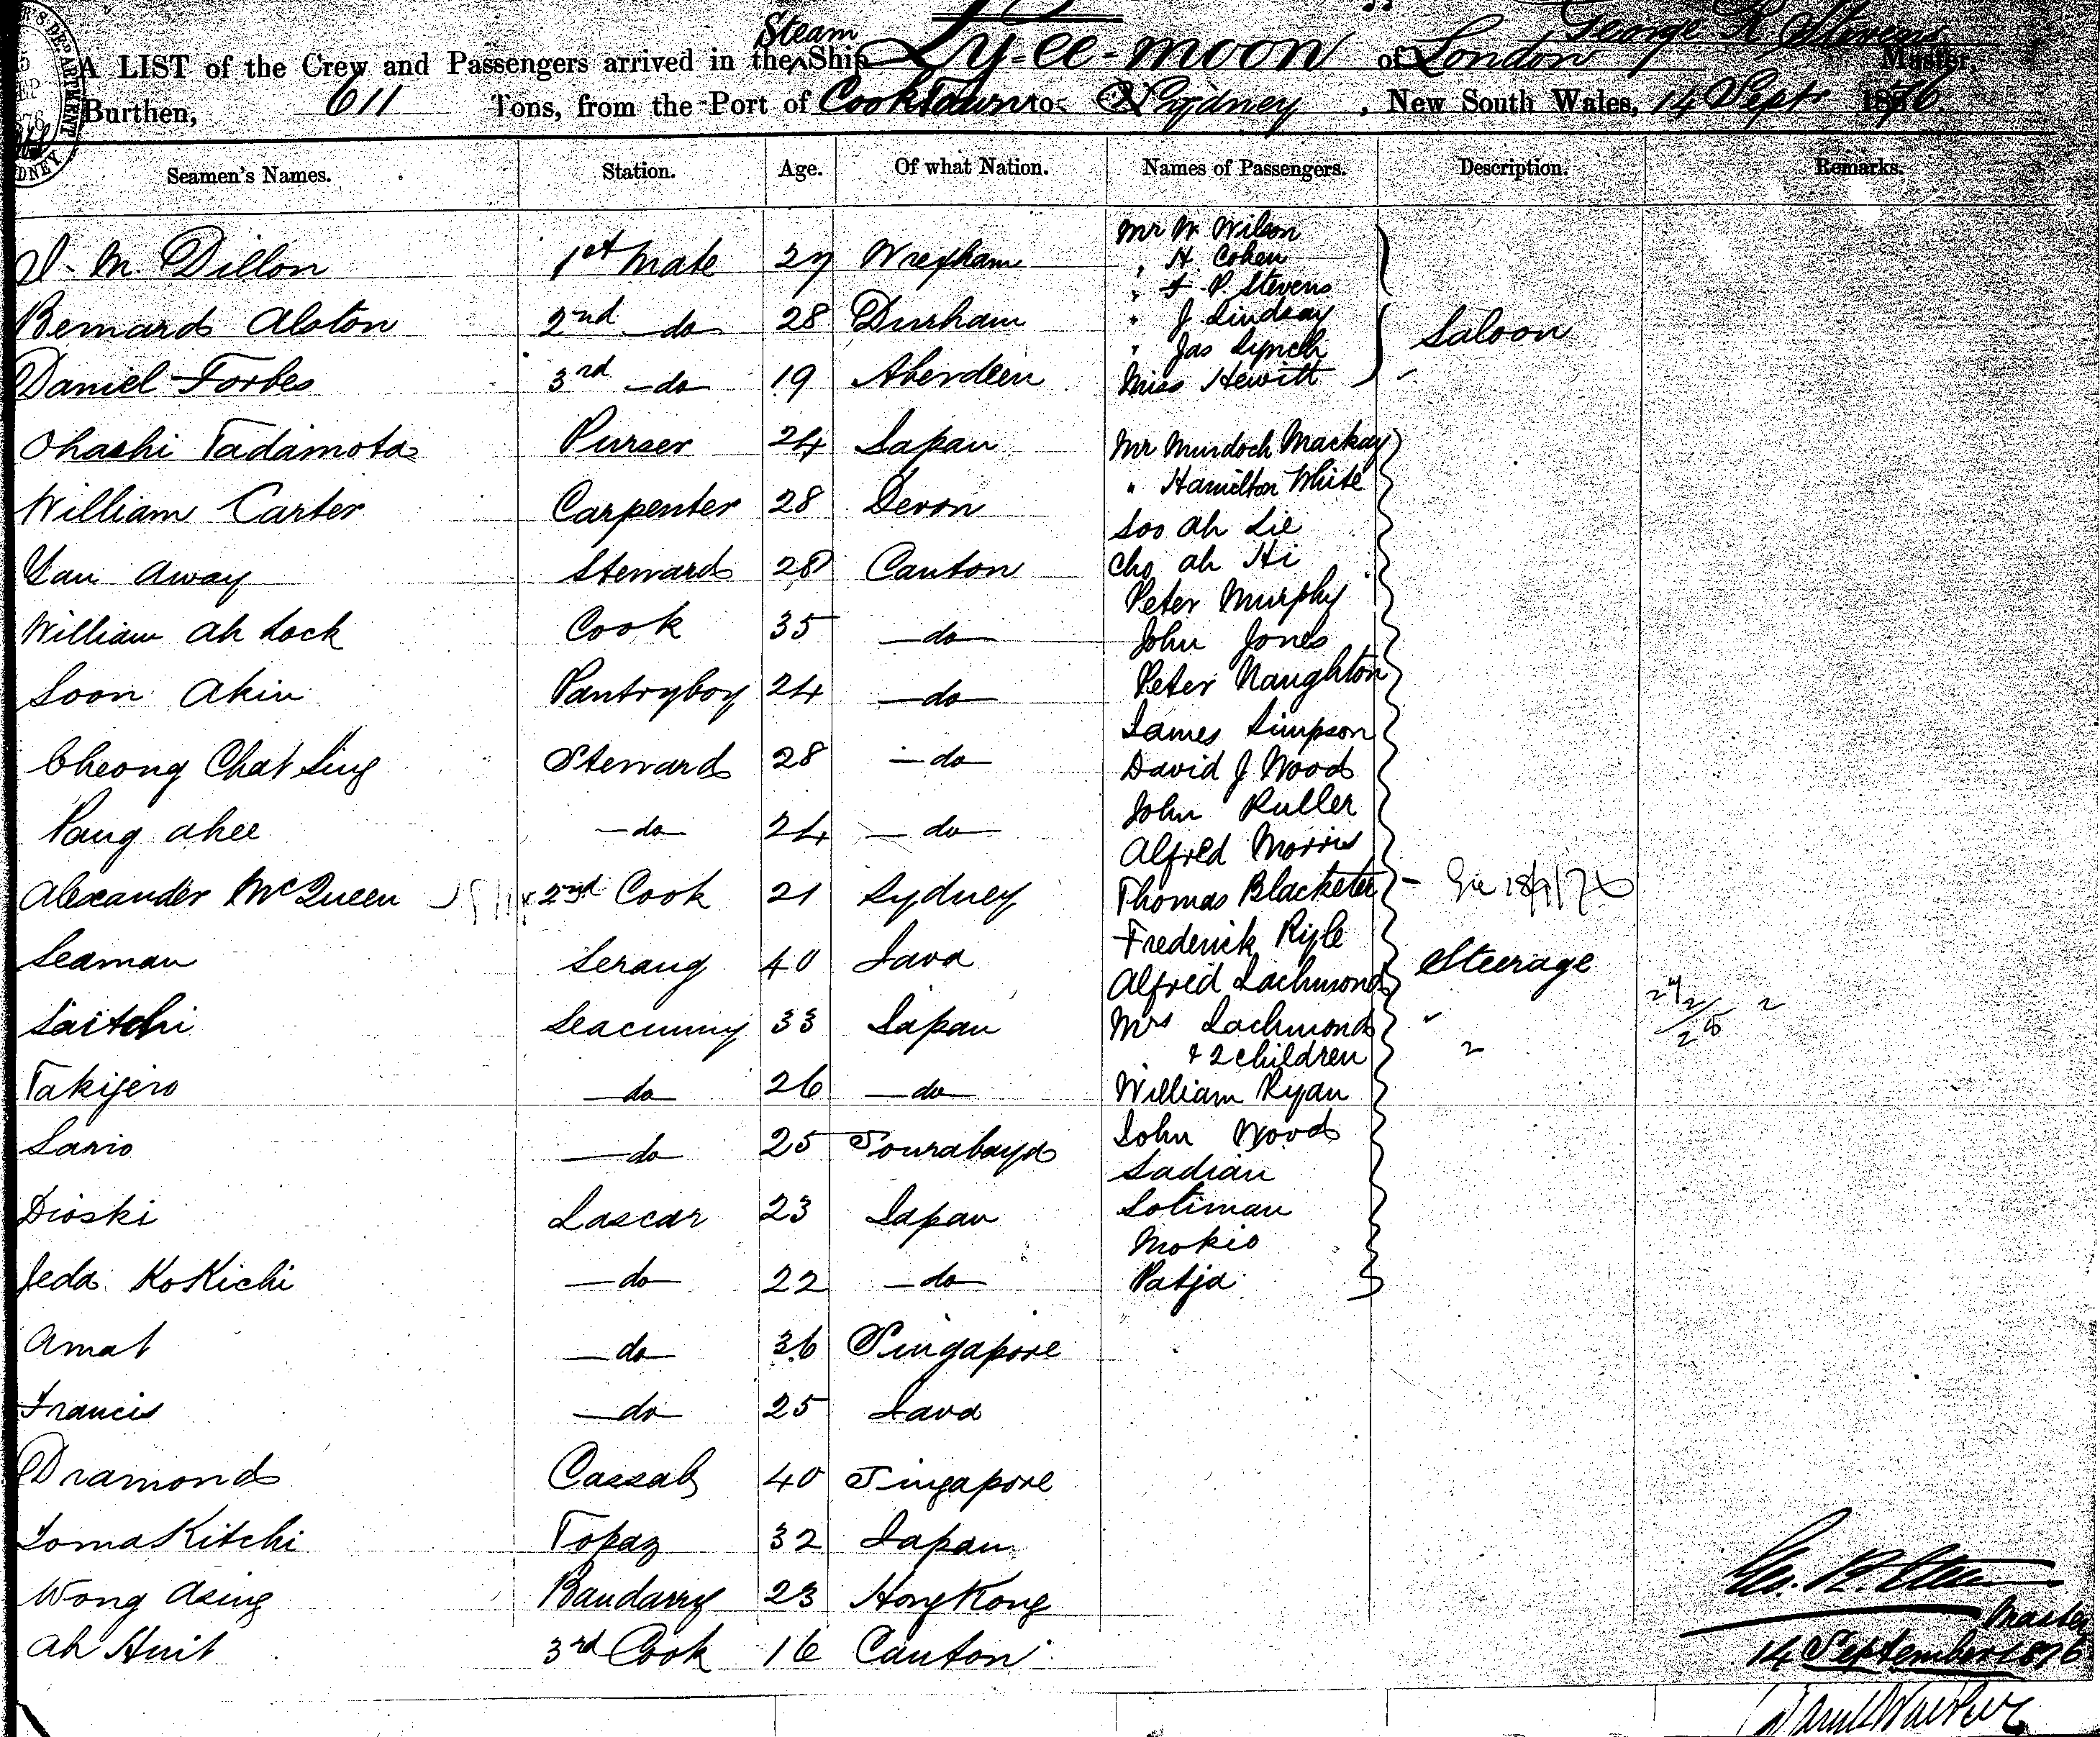 Steam
A LIST of the Crew and Passengers arrived in the Ship Ly-ee-moon of London George R Stevens Master,
Burthen, 611 Tons, from the Port of Cooktown to Sydney, New South Wales, 14 Sept 1876
Seamen's Names. Station. Age. Of what Nation. Names of Passengers. Description. Remarks.
M. Dillon 1st Mate 27 Wrexham
Bernard Alston 2nd do 28 Durham
Daniel Forbes 3rd do 19 Aberdeen
Ohashi Tadamota Purser 24 Japan
William Carter Carpenter 28 Devon
Yau Away Steward 28 Canton
William Ah Lock Cook 35 do
Soon Akin Pantryboy 24 do
Cheong Chat Sing Steward 28 do
Pang Ahee do 24 do
Alexander McQueen 2nd Cook 21 Sydney
Seaman Serang 40 Java
Saitchi Seacunny 33 Japan
Takijero do 26 do
Sario do 25 Sourabaya
Dioski Lascar 23 Japan
Jeda KoKichi do 22 do
Amat do 36 Singapore
Francis do 25 Java
Dramond Cassab 40 Singapore
TomaKitchi Topaz 32 Japan
Wong Asing Bandarry 23 HongKong
Ah Huit 3rd Cook 16 Canton
Mr W. Wilson
" H Cohen
" F. P. Stevens
" J. Lindsay
" Jas Lynch
Miss Hewitt
Saloon
Mr Murdoch Mackay
" Hamilton White
Soo Ah Lie
Cho Ah Hi
Peter Murphy
John Jones
Peter Naughton
James Simpson
David J Wood
John Ruller
Alfred Morris
Thomas Blacketer
Frederick Riple
Alfred Lachmond
Mrs Lachmond
& 2 children
William Ryan
John Wood
Sadian
Soliman
Mokio
Patja
Steerage
2
Geo. R. Stevens
Master
14 September 1876